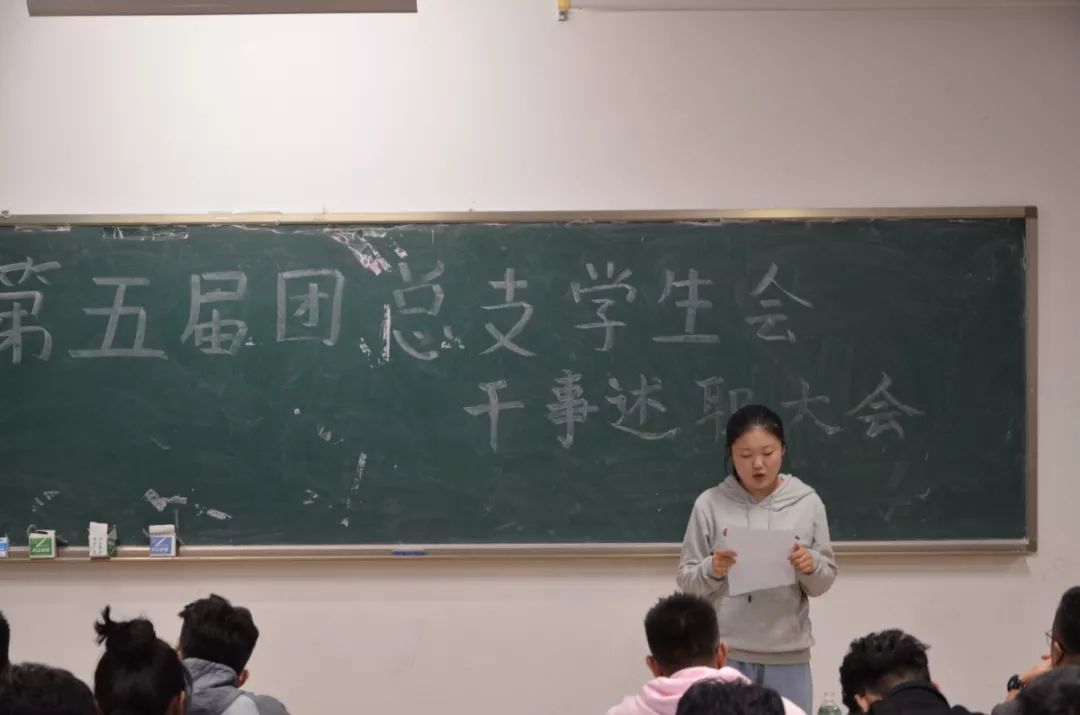 第五届团总支学生会
干事述职大会